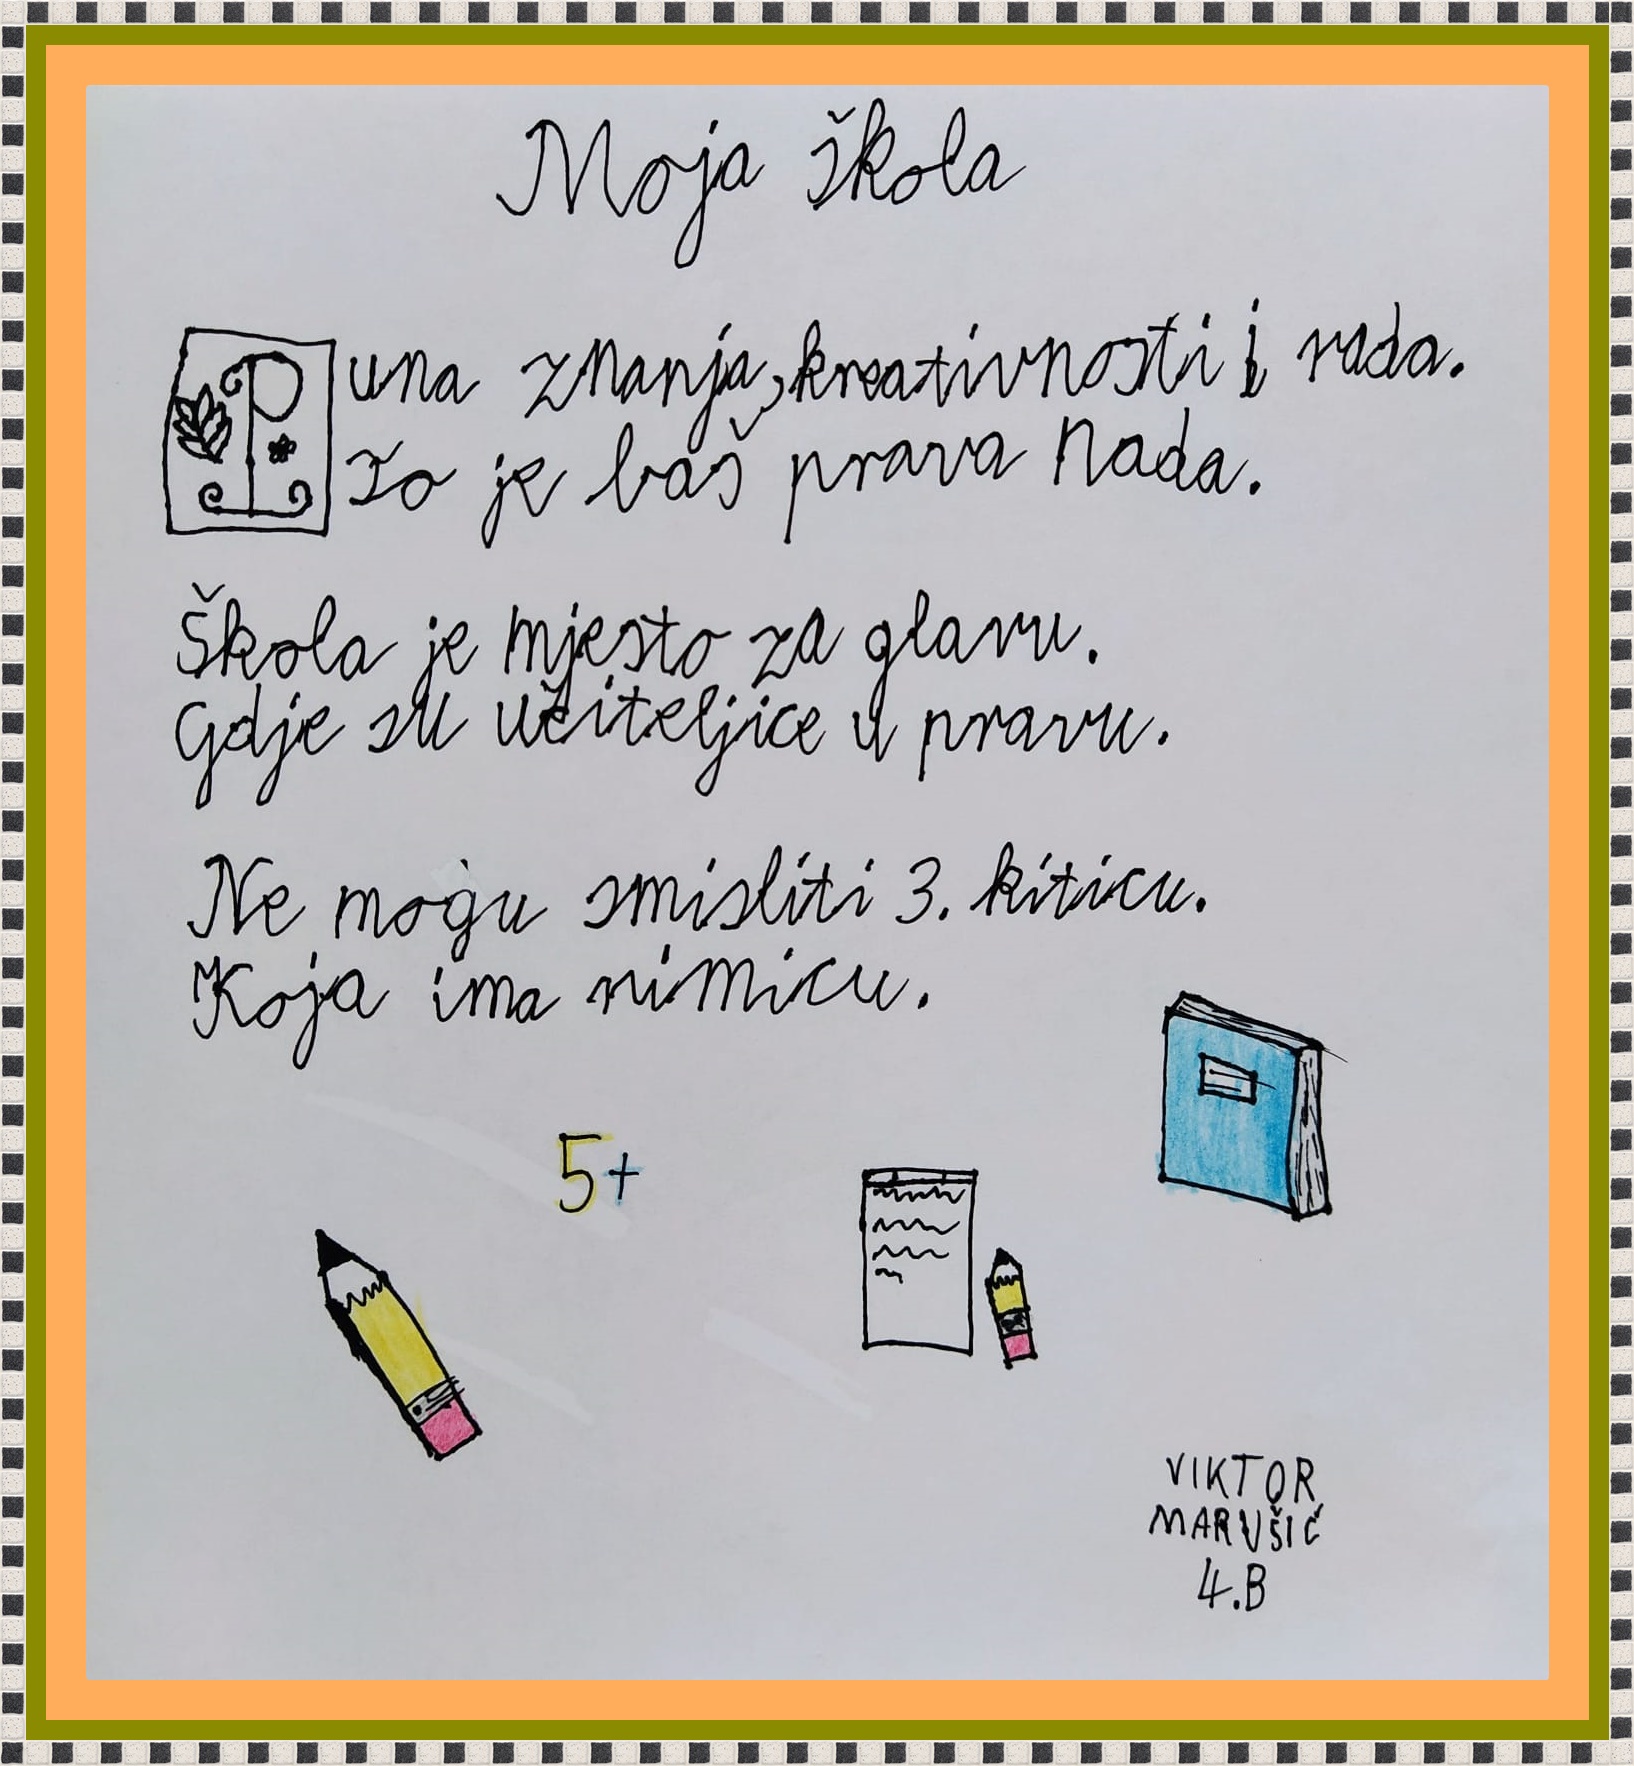 Moja škola
Puna znanja, kreativnosti i rada.
To je baš prava nada.
Škola je mjesto za glavu.
Gdje su učiteljice u pravu.
Ne mogu smisliti 3. kiticu.
Koja ima rimicu.
5+
VIKTOR
MARUŠIĆ
4.B